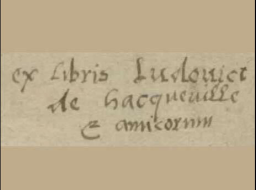 ex Libris Ludouici
de hacqueuille
& amicorum